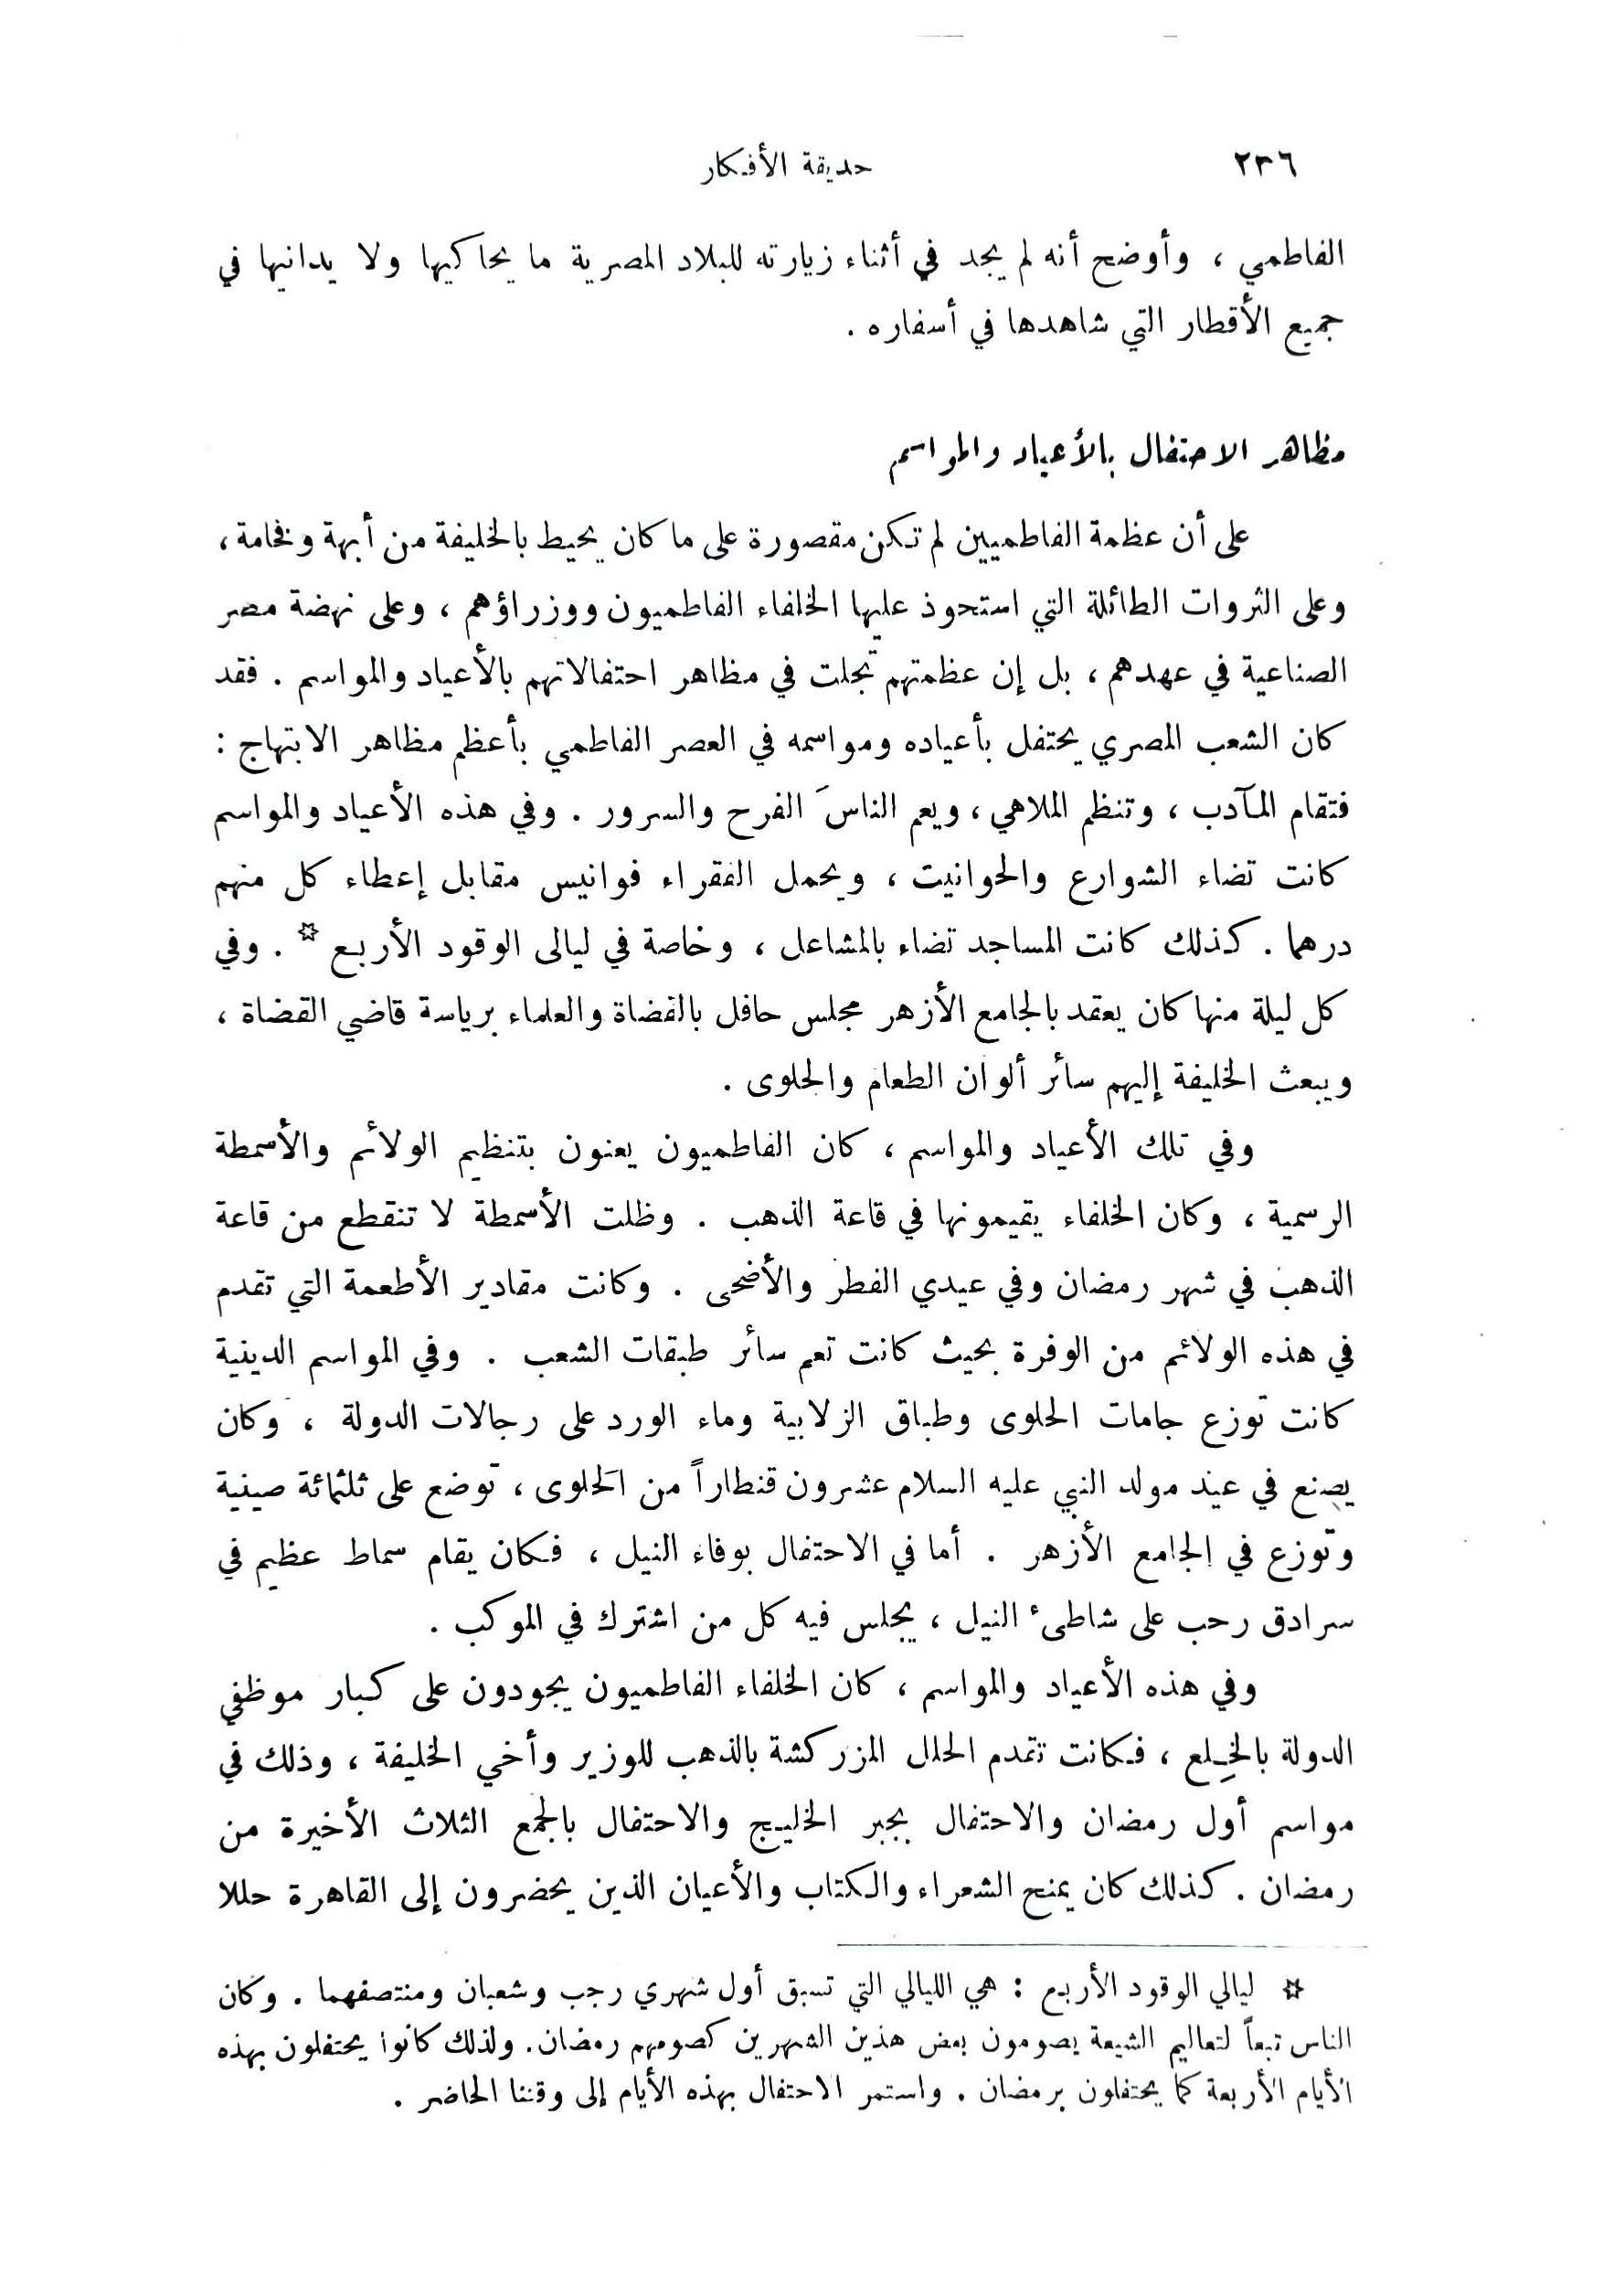 ٢٣٦
حديقة الأفكار
الفاطمي ، وأوضح أنه لم يجد في أثناء زيارته للبلاد المصرية ما يحاكيها ولا يدانيها في
جميع الأقطار التي شاهدها في أسفاره .
مظاهر الاحتفال بالأعياد والمواسم
على أن عظمة الفاطميين لم تكن مقصورة على ما كان يحيط بالخليفة من أبهة وفخامة ،
وعلى الثروات الطائلة التي استحوذ عليها الخلفاء الفاطميون ووزراؤهم ، وعلى نهضة مصر
الصناعية في عهدهم ، بل إن عظمتهم تجلت في مظاهر احتفالاتهم بالأعياد والمواسم . فقد
كان الشعب المصري يحتفل بأعياده ومواسمه في العصر الفاطمي بأعظم مظاهر الابتهاج :
فتقام المآدب ، وتنظم الملاهي ، ويعم الناسَ الفرح والسرور . وفي هذه الأعياد والمواسم
كانت تضاء الشوارع والحوانيت ، ويحمل الفقراء فوانيس مقابل إعطاء كل منهم
درهما . كذلك كانت المساجد تضاء بالمشاعل ، وخاصة في ليالى الوقود الأربع * . وفي
كل ليلة منها كان يعقد بالجامع الأزهر مجلس حافل بالقضاة والعلماء برياسة قاضي القضاة ،
ويبعث الخليفة إليهم سائر ألوان الطعام والحلوى .
وفي تلك الأعياد والمواسم ، كان الفاطميون يعنون بتنظيم الولائم والأسمطة
الرسمية ، وكان الخلفاء يقيمونها في قاعة الذهب . وظلت الأسمطة لا تنقطع من قاعة
الذهب في شهر رمضان وفي عيدي الفطر والأضحى . وكانت مقادير الأطعمة التي تقدم
في هذه الولائم من الوفرة بحيث كانت تعم سائر طبقات الشعب . وفي المواسم الدينية
كانت توزع جامات الحلوى وطباق الزلابية وماء الورد على رجالات الدولة ، وكان
يصنع في عيد مولد النبي عليه السلام عشرون قنطاراً من الحلوى ، توضع على ثلثمائة صينية
وتوزع في الجامع الأزهر . أما في الاحتفال بوفاء النيل ، فكان يقام سماط عظيم في
سرادق رحب على شاطىء النيل ، يجلس فيه كل من اشترك في الموكب .
وفي هذه الأعياد والمواسم ، كان الخلفاء الفاطميون يجودون على كبار موظفي
الدولة بالخِلع ، فكانت تقدم الحلل المزركشة بالذهب للوزير وأخي الخليفة ، وذلك في
مواسم أول رمضان والاحتفال بجبر الخليج والاحتفال بالجمع الثلاث الأخيرة من
رمضان . كذلك كان يمنح الشعراء والكتاب والأعيان الذين يحضرون إلى القاهرة حللا
* ليالي الوقود الأربع : هي الليالي التي تسبق أول شهري رجب وشعبان ومنتصفهما . وكان
الناس تبعاً لتعاليم الشيعة يصومون بعض هذين الشهرين كصومهم رمضان . ولذلك كانوا يحتفلون بهذه
الأيام الأربعة كما يحتفلون برمضان . واستمر الاحتفال بهذه الأيام إلى وقتنا الحاضر .